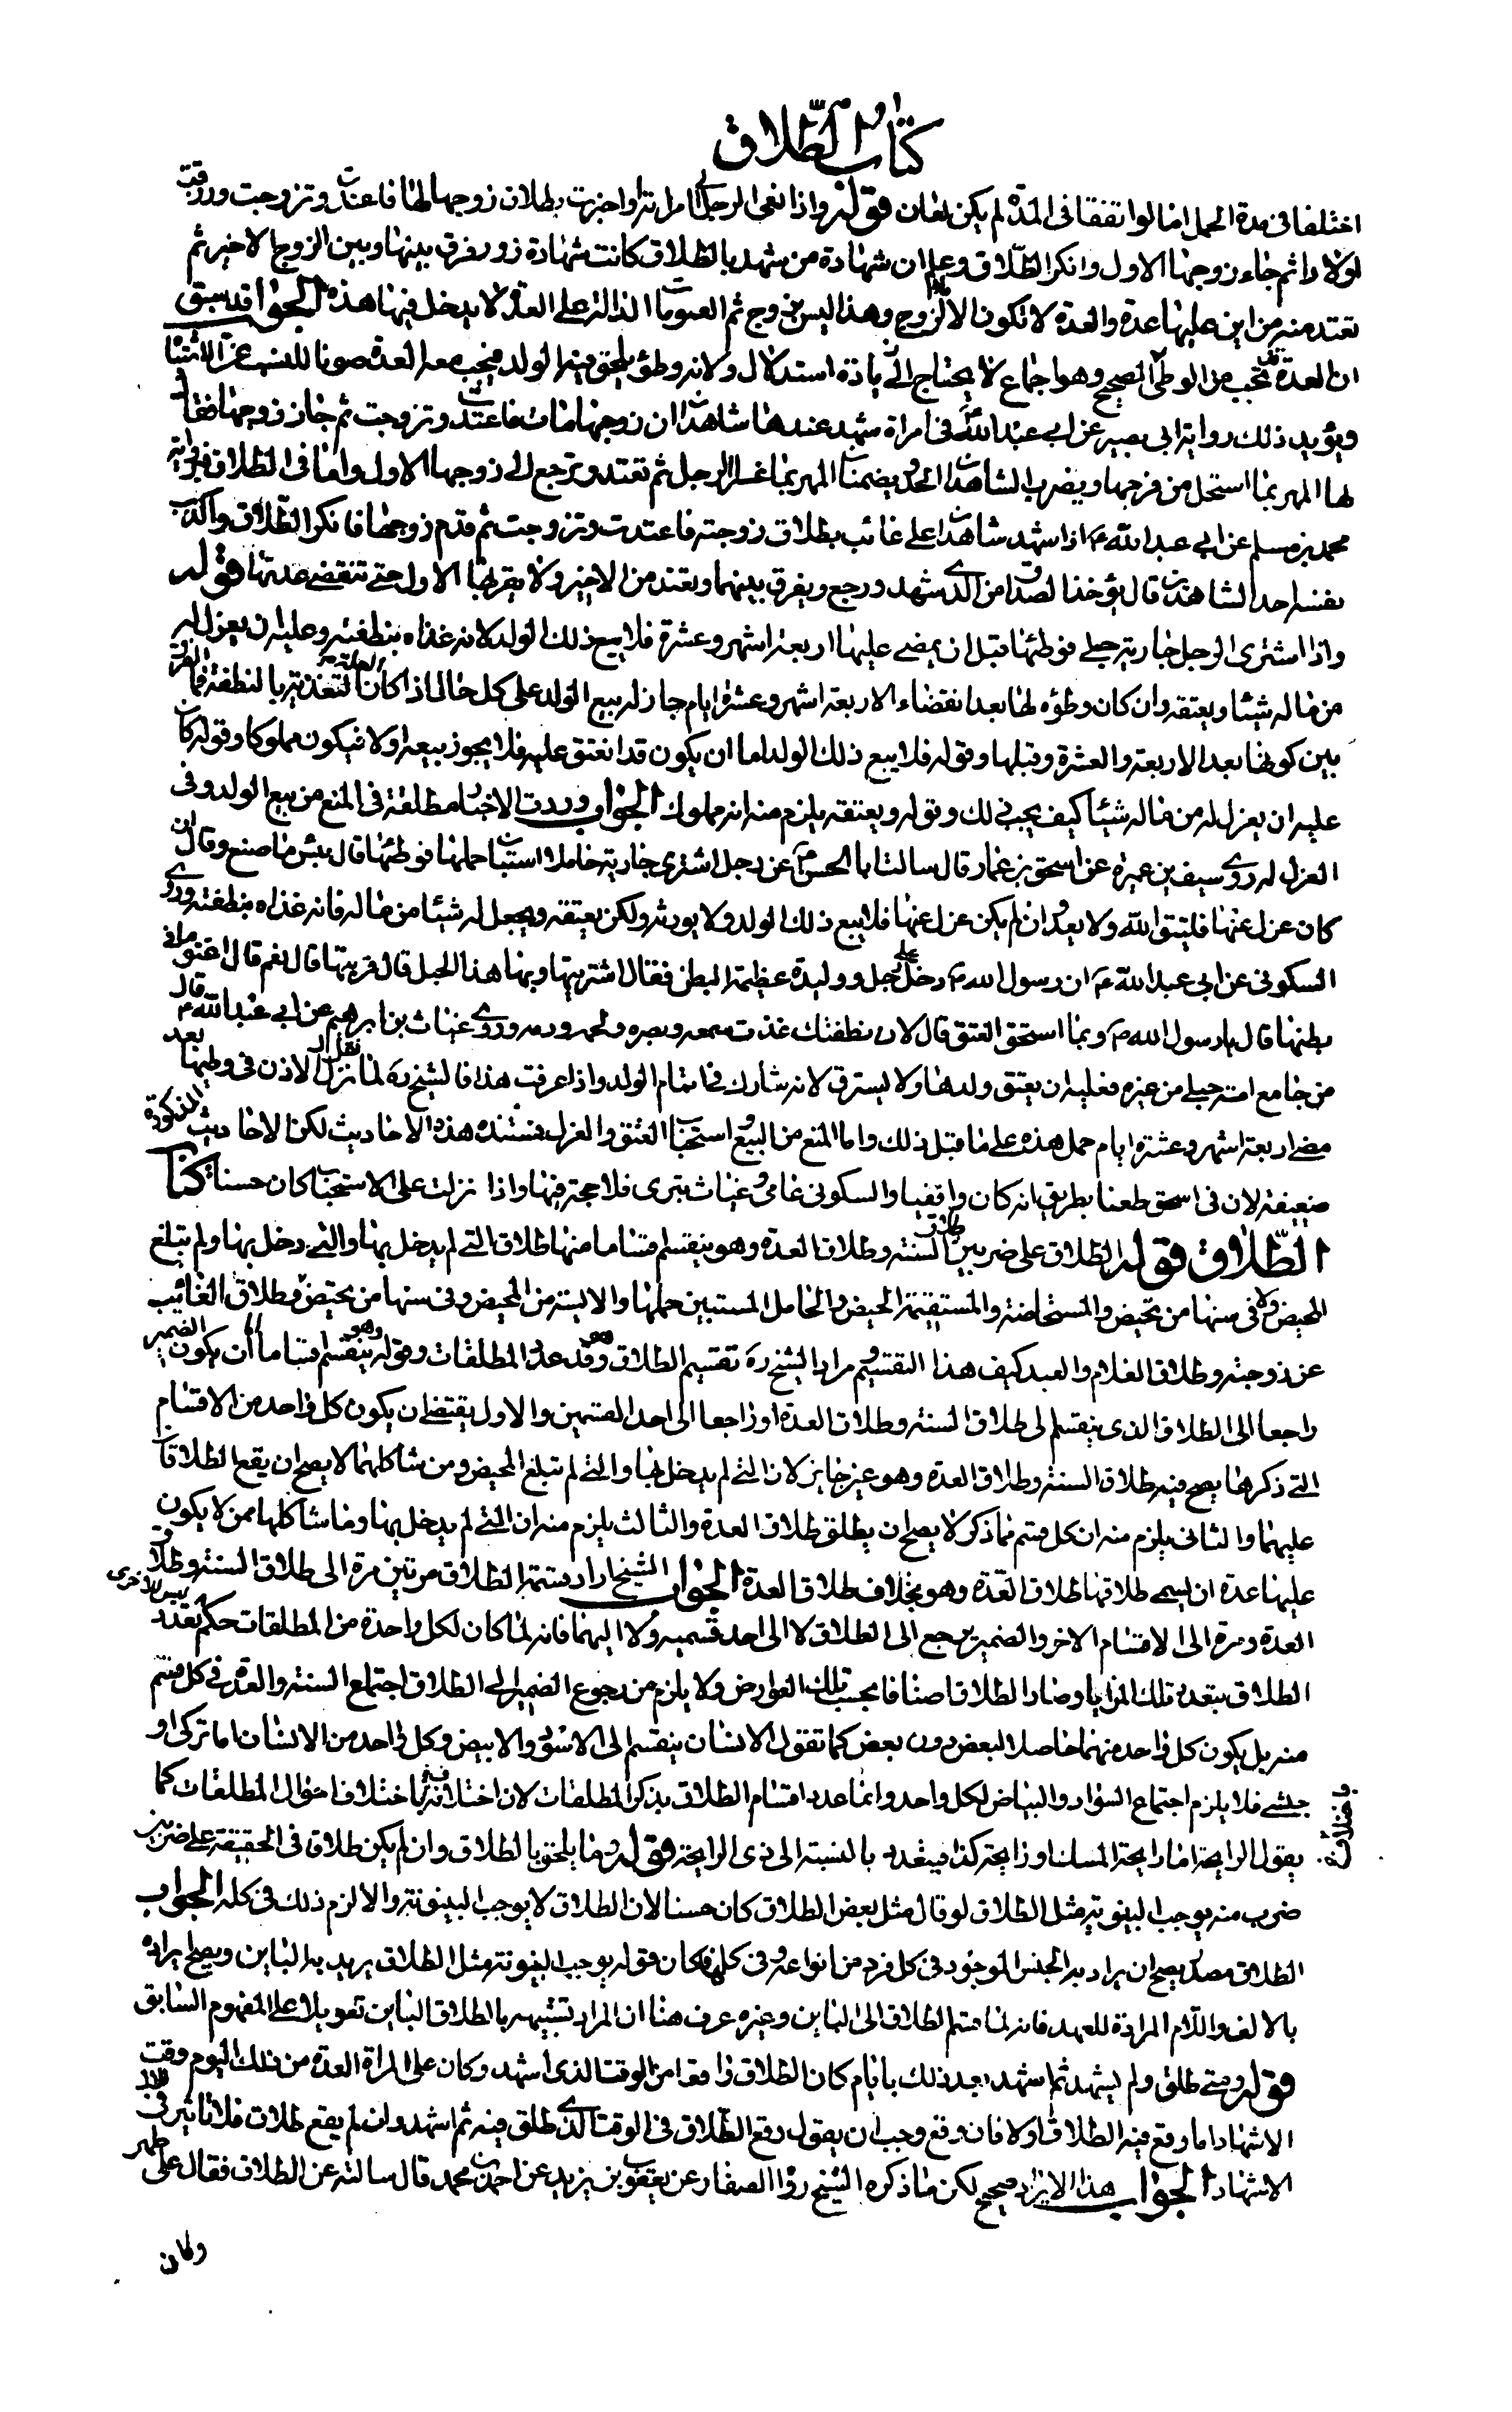 كتاب الطلاق
اختلفا فى مدة الحمل اما لو اتفقا فى المدة لم يكن لعان قوله واذا نعى الرجل الى امراته او اخبرت بطلاق زوجها لها فاعتدت وتزوجت ورزقت
اولادا ثم جاء زوجها الاول وانكر الطلاق وعلم ان شهادة من شهد بالطلاق كانت شهادة زور فرق بينها وبين الزوج الاخير ثم
تعتد منه من اين عليها عدة والعدة لا تكون الا لزوج وهذا ليس بزوج ثم العمومات الدالة على العدة لا يدخل فيها هذه الجواب قد سبق
ان العدة تجب من الوطى الصحيح وهو اجماع لا يحتاج الى زيادة استدلال ولانه وطؤ يلحق فيه الولد فيجب معه العدة صونا للنسب عن الاشتباه
ويؤيد ذلك رواية ابى بصير عن ابى عبد الله فى امراة شهد عندها شاهدان ان زوجها مات فاعتدت وتزوجت ثم جاء زوجها فقال
لها المهر بما استحل من فرجها ويضرب الشاهدان الحد ويضمنان المهر بما غرا الرجل ثم تعتد وترجع الى زوجها الاول واما فى الطلاق فرواية
محمد بن مسلم عن ابى عبد الله ع اذا شهد شاهدان على غائب بطلاق زوجته فاعتدت وتزوجت ثم قدم زوجها فانكر الطلاق واكذب
نفسه احد الشاهدين قال يؤخذ الصداق من الذى شهد ورجع ويفرق بينهما وتعتد من الاخير ولا يقربها الاول حتى تنقضى عدتها قوله
واذا اشترى الرجل جارية حبلى فوطئها قبل ان يمضى عليها اربعة اشهر وعشرة فلا يبيع ذلك الولد لانه غذاه بنطفته وعليه ان يعزل له
من ماله شيئا ويعتقه وان كان وطؤه لها بعد انقضاء الاربعة اشهر وعشرة ايام جاز له بيع الولد على كل حال اذا كان العلة التغذية بالنطفة فما الفرق
بين كونها بعد الاربعة والعشرة وقبلها وقوله فلا يبيع ذلك الولد اما ان يكون قد انعتق عليه فلا يجوز بيعه او لا فيكون مملوكا وقوله كان
عليه ان يعزل له من ماله شيئا كيف يجب ذلك وقوله ويعتقه يلزم منه انه مملوك الجواب وردت الاخبار مطلقة فى المنع من بيع الولد وفى
العزل له روى سيف بن عميرة عن اسحق بن عمار قال سالت ابا الحسن ع عن رجل اشترى جارية حاملا استبان حملها فوطئها قال بئس ما صنع وقال ان
كان عزل عنها فليتق الله ولا يعد وان لم يكن عزل عنها فلا يبيع ذلك الولد ولا يورثه ولكن يعتقه ويجعل له شيئا من ماله فانه غذاه بنطفته وروى
السكونى عن ابى عبد الله ع ان رسول الله ص دخل على رجل ووليدة عظيمة البطن فقال اشتريتها وبها هذا الحبل قال قربتها قال نعم قال اعتق ما فى
بطنها قال يا رسول الله ص وبما استحق العتق قال لان نطفتك غذت سمعه وبصره ولحمه ودمه وروى غياث بن ابرهيم عن ابى عبد الله ع قال
من جامع امته حبلى من غيره فعليه ان يعتق ولدها ولا يسترق لانه شارك فى اتمام الولد واذا عرفت هذا فالشيخ ره لما نزل الاذن فى وطيها بعد
مضى اربعة اشهر وعشرة ايام حمل هذه على ما قبل ذلك واما المنع من البيع واستحباب العتق والعزل فمستنده هذه الاحاديث لكن الاحاديث المذكورة
ضعيفة لان فى اسحق طعنا بطريق انه كان واقفيا والسكونى عامى وغياث بترى فلا حجة فيها واذا نزلت على الاستحباب كان حسنا كتاب
الطلاق قوله الطلاق على ضربين طلاق السنة وطلاق العدة وهو ينقسم اقساما منها طلاق التى لم يدخل بها والتى دخل بها ولم تبلغ
المحيض ولا فى سنها من تحيض والمستحاضة والمستقيمة الحيض والحامل المستبين حملها والايسة من المحيض وفى سنها من يحتيض وطلاق الغائب
عن زوجته وطلاق الغلام والعبد كيف هذا التقسيم مراد الشيخ ره تقسيم الطلاق وهو قد عد المطلقات وقوله وهو ينقسم اقساما اما ان يكون الضمير
راجعا الى الطلاق الذى ينقسم الى طلاق السنة وطلاق العدة او راجعا الى احد القسمين والاول يقتضى ان يكون كل واحد من الاقسام
التى ذكرها يصح فيه طلاق السنة وطلاق العدة وهو غير جايز لان التى لم يدخل بها والتى لم تبلغ المحيض ومن شاكلهما لا يصح ان يقع الطلاقان
عليهما والثانى يلزم منه ان كل قسم مما ذكر لا يصلح ان يطلق طلاق العدة والثالث يلزم منه ان التى لم يدخل بها وما شاكلها ممن لا يكون
عليها عدة ان يسمى طلاقها طلاق العدة وهو بخلاف طلاق العدة الجواب الشيخ اراد قسمة الطلاق مرتين مرة الى طلاق السنة وطلاق
العدة ومرة الى الاقسام الاخر والضمير يرجع الى الطلاق لا الى احد قسميه ولا اليهما فانه لما كان لكل واحدة من المطلقات حكم ليس للاخرى تعدد
الطلاق بتعدد تلك المزايا وصار الطلاق اصنافا بحسب تلك العوارض ولا يلزم من رجوع الضمير الى الطلاق اجتماع السنة والعدة فى كل قسم
منه بل يكون كل واحد منهما حاصلا لبعض دون بعض كما تقول الانسان ينقسم الى الاسود والابيض وكل واحد من الانسان اما تركى او
حبشى فلا يلزم اجتماع السواد والبياض لكل واحد وانما عدد اقسام الطلاق بذكر المطلقات لان اختلافه باختلاف احوال المطلقات كما
يقول الرايحة اما رايحة المسك او رايحة كذا فيعدد بالنسبة الى ذى الرايحة قوله وما يلحق بالطلاق وان لم يكن طلاق فى الحقيقة على ضربين
ضرب منه يوجب البينونة مثل الطلاق لو قال مثل بعض الطلاق كان حسنا لان الطلاق لا يوجب البينونة والا لزم ذلك فى كله الجواب
الطلاق مصدر يصح ان يراد به الجنس الموجود فى كل فرد من انواعه وفى كلها فكان قوله يوجب البينونة مثل الطلاق يريد به الباين ويصح ايراده
بالالف واللام المرادة للعهد فانه لما قسم الطلاق الى الباين وغيره عرف هنا ان المراد تشبيهه بالطلاق الباين تعويلا على المفهوم السابق
قوله ومتى طلق ولم يشهد ثم اشهد بعد ذلك بايام كان الطلاق واقعا من الوقت الذى اشهد وكان على المراة العدة من ذلك اليوم وقت
الاشهاد اما وقع فيه الطلاق او لا فان وقع وجب ان يقول وقع الطلاق فى الوقت الذى طلق فيه ثم اشهد وان لم يقع طلاق فلا تاثير فى
الاشهاد الجواب هذا الايراد صحيح لكن ما ذكره الشيخ رواه الصفار عن يعقوب بن يزيد عن احمد بن محمد قال سالته عن الطلاق فقال على طهر
وكان